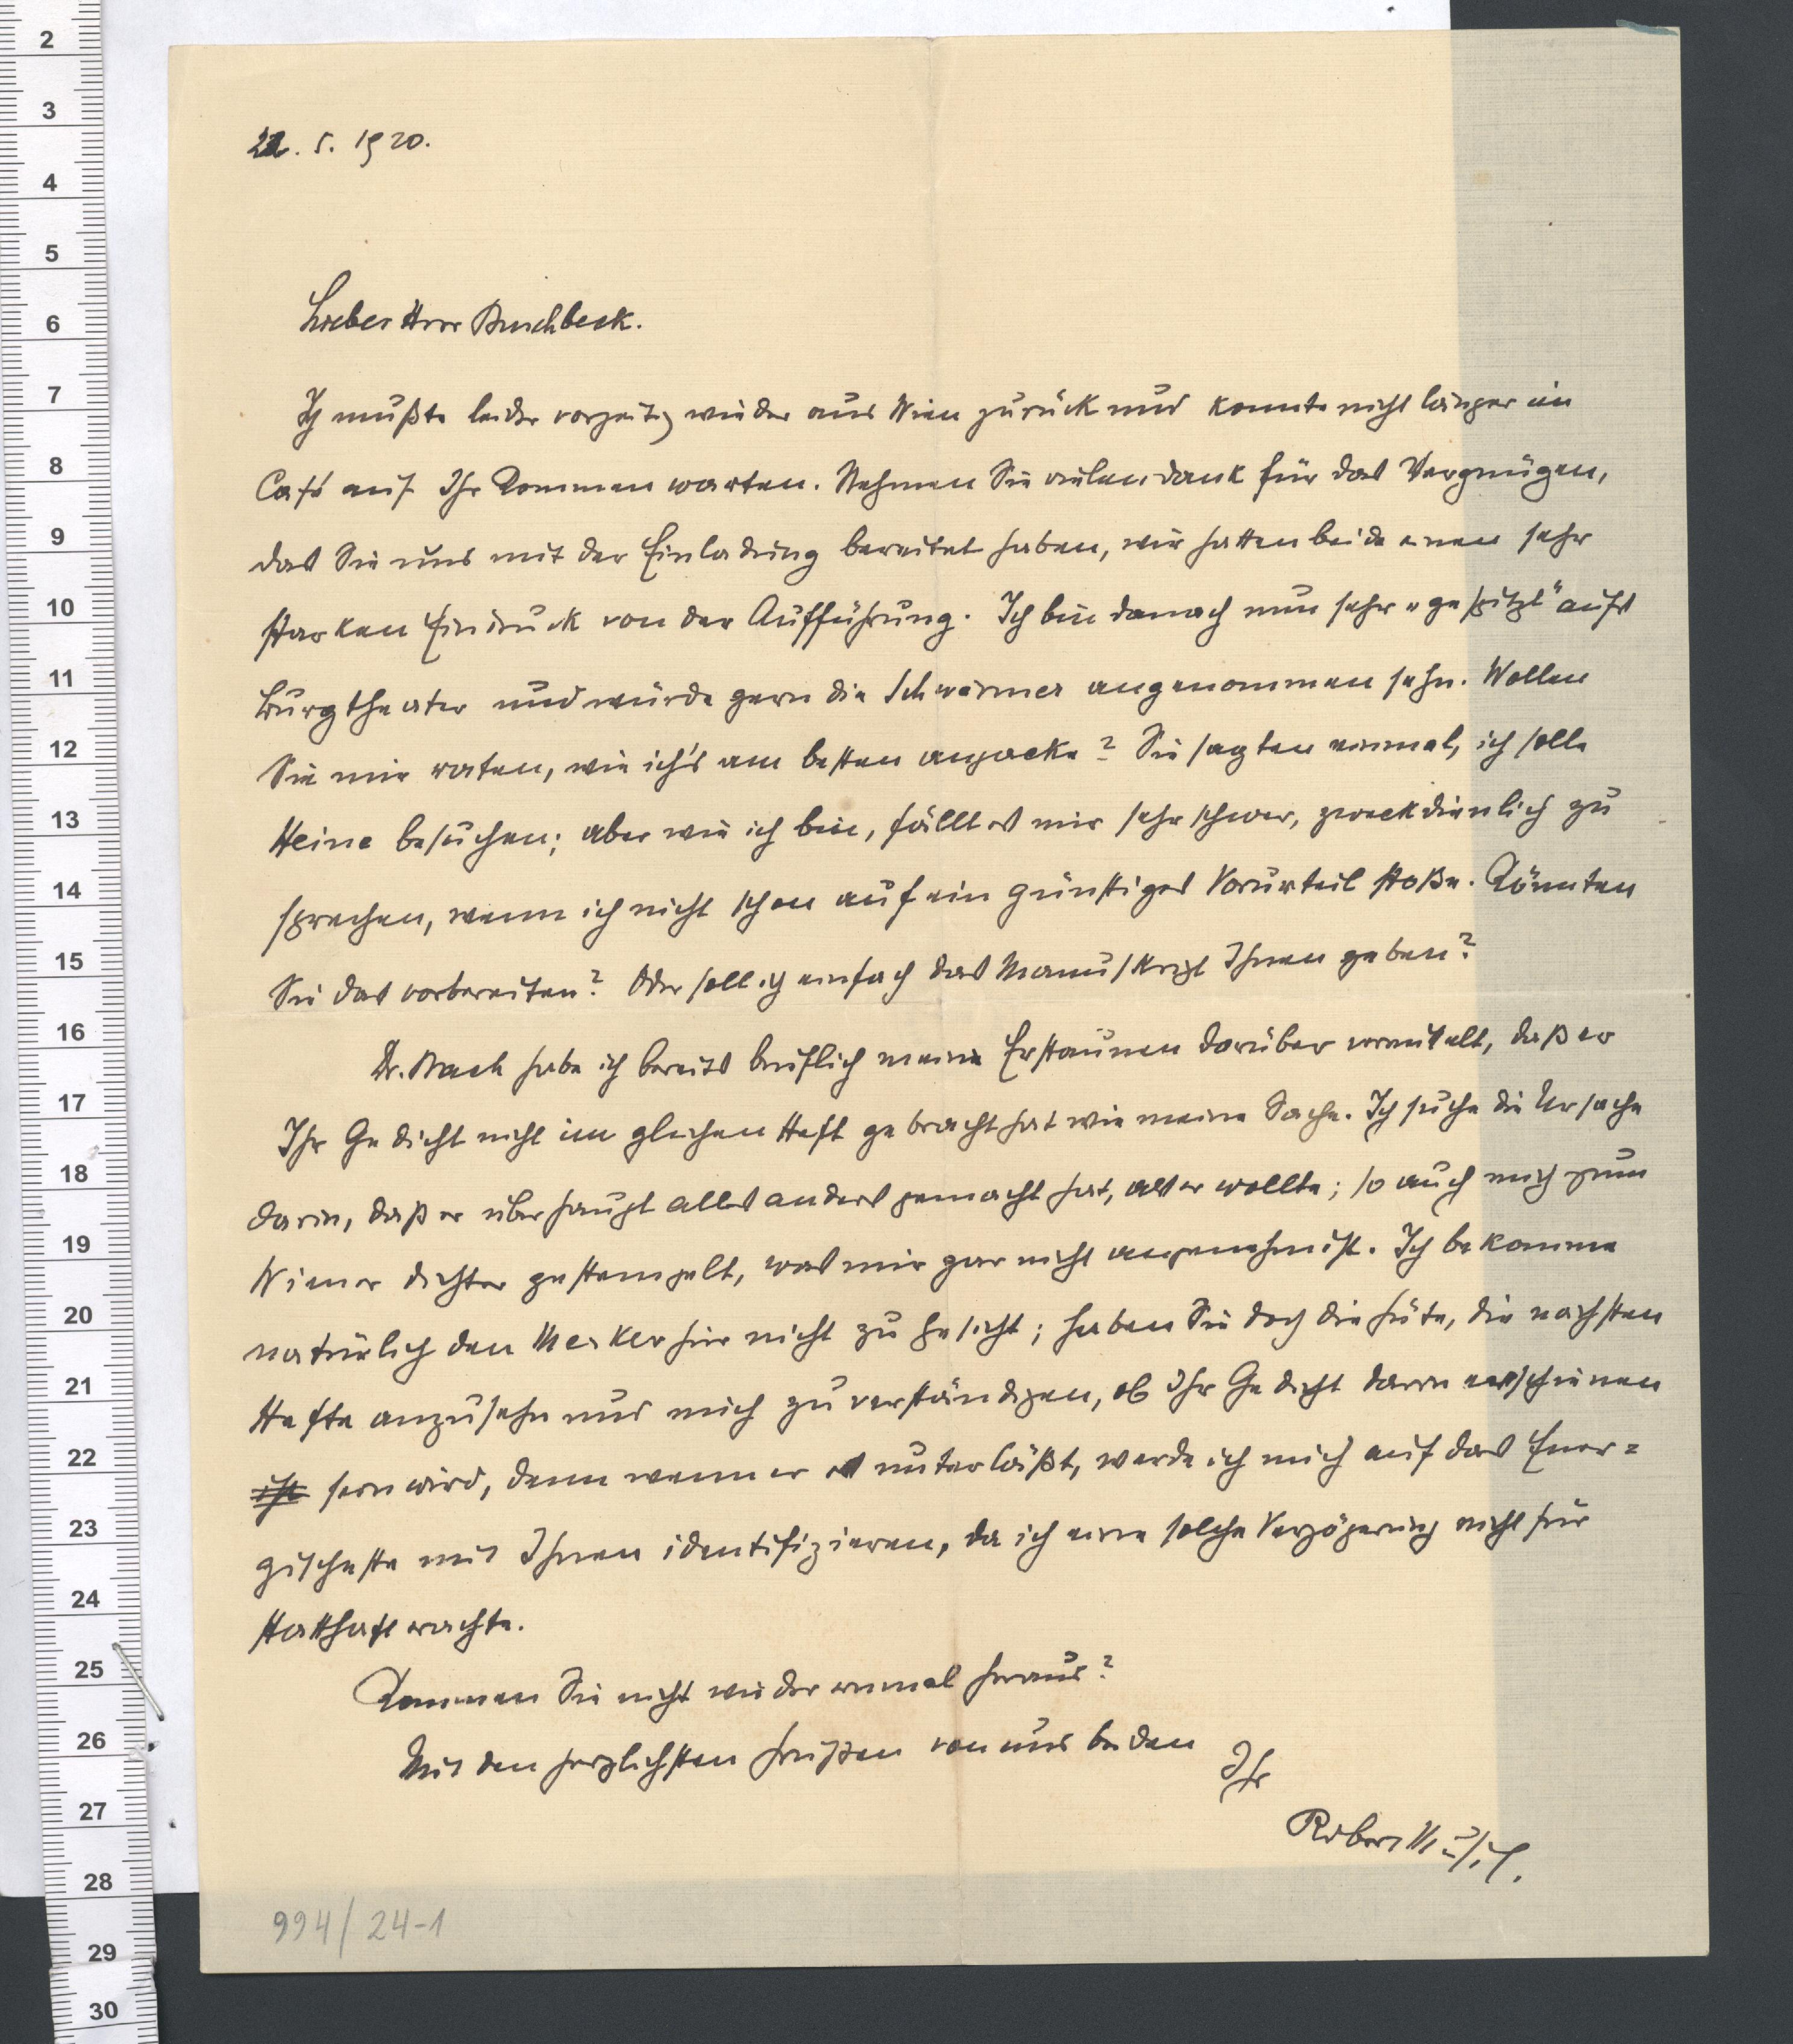 22. 5. 1920.
Lieber Herr Buschbeck.
Ich mußte leider vorzeitig wieder aus Wien zurück und konnte nicht länger im
Café auf Ihr Kommen warten. Nehmen Sie vielen Dank für das Vergnügen,
das Sie uns mit der Einladung bereitet haben, wir hatten beide einen sehr
starken Eindruck von der Aufführung. Ich bin danach nun sehr „gespitzt“ aufs
Burgtheater und würde gern die Schwärmer angenommen sehn. Wollen
Sie mir raten, wie ich's am besten anpacke? Sie sagten einmal, ich solle
Heine besuchen; aber wie ich bin, fällt es mir sehr schwer, zweckdienlich zu
sprechen, wenn ich nicht schon auf ein günstiges Vorurteil stoße. Könnten
Sie das vorbereiten? Oder soll ich einfach das Manuskript Ihnen geben?
Dr. Bach habe ich bereits brieflich mein Erstaunen darüber vermittelt, daß er
Ihr Gedicht nicht im gleichen Heft gebracht hat wie meine Sache. Ich suche die Ursache
darin, daß er überhaupt alles anders gemacht hat, als er wollte; so auch mich zum
Wiener Dichter gestempelt, was mir gar nicht angenehm ist. Ich bekomme
natürlich den Merker hier nicht zu Gesicht; haben Sie doch die Güte, die nächsten
Hefte anzusehn und mich zu verständigen, ob Ihr Gedicht darin erschienen
ist sein wird, denn wenn er es unterläßt, werde ich mich auf das Ener=
gischeste mit Ihnen identifizieren, da ich eine solche Verzögerung nicht für
statthaft erachte.
Kommen Sie nicht wieder einmal heraus?
Mit den herzlichsten Grüßen von uns beiden
Ihr
Robert Musil.
994/24-1
2
3
4
5
6
7
8
9
10
11
12
13
14
15
16
17
18
19
20
21
22
23
24
25
26
27
28
29
30